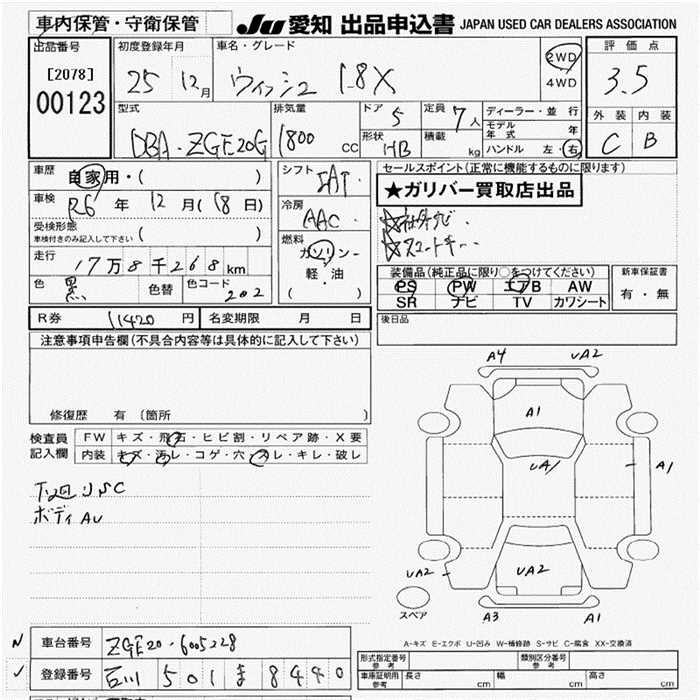 車内保管・守衛保管
JU 愛知 出品申込書 JAPAN USED CAR DEALERS ASSOCIATION
出品番号 初度登録年月 車名・グレード 評価点
[2078] 25 12月 ウィッシュ 1.8X 2WD 3.5
00123 4WD
型式 排気量 ドア 5 定員 7人 ディーラー・並行 外装 内装
DBA-ZGE20G 1800cc 形状 HB 積載 kg モデル年式 年 C B
ハンドル 左・右
車歴 自家用・( ) シフト FAT セールスポイント(正常に機能するものに限ります)
★ガリバー買取店出品
車検 R6年 12月(18日) 冷房 AAC ☆社外ナビ
受検形態 ☆スマートキー
車検付きのみ記入して下さい ( ) 燃料 ガソリン
走行 17万8千268km 軽・油 装備品(純正品に限り○をつけてください) 新車保証書
色 黒 色替 色コード 202 ( ) PS PW エアB AW 有・無
SR ナビ TV カワシート
R券 11420円 名変期限 月 日 後日品
注意事項申告欄(不具合内容等は具体的に記入して下さい)
修復歴 有(箇所 )
検査員 FW キズ・飛石・ヒビ割・リペア跡・X要
記入欄 内装 キズ・汚レ・コゲ・穴・スレ・キレ・破レ
下廻りSC
ボディAU
A4 UA2
A1
UA1 A1
UA2 UA2
スペア A3 A1
A-キズ E-エクボ U-凹み W-補修跡 S-サビ C-腐食 XX-交換済
車台番号 ZGE20-6005228
登録番号 石川 501 ま 8440
形式指定番号 参考 類別区分番号 参考
車庫証明用 参考 長さ cm 幅 cm 高さ cm